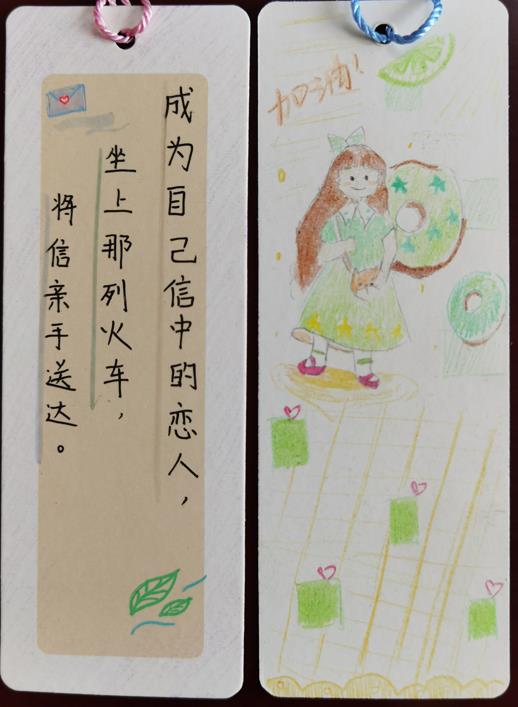 成为自己信中的恋人，
坐上那列火车，
将信亲手送达。
加油!